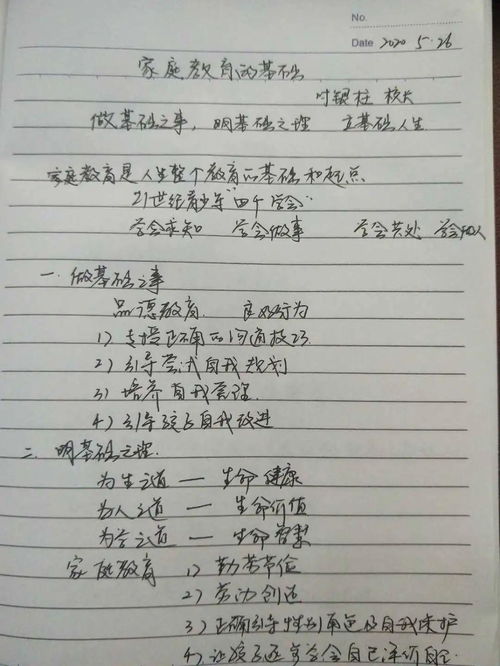 No.
Date 2020 5.26
家庭教育的基础
叶银柱 校长
做基础之事, 明基础之理 立基础人生
家庭教育是人生整个教育的基础和起点
21世纪青少年"四个学会"
学会求知 学会做事 学会共处 学会做人
一. 做基础之事
品德教育 良好行为
1) 专培正确的沟通技巧
2) 引导尝试自我规划
3) 培养自我管理
4) 引导孩子自我改进
二. 明基础之理
为生之道 — 生命健康
为人之道 — 生命价值
为学之道 — 生命智慧
家庭教育 1) 勤劳节俭
2) 劳动创造
3) 正确引导性别角色及自我保护
4) 让孩子学会自己